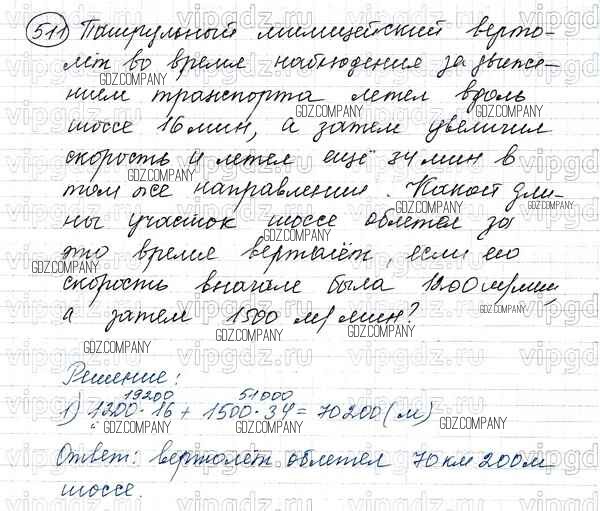 511 Патрульный милицейский верто-
лёт во время наблюдения за движе-
нием транспорта летел вдоль
шоссе 16 мин, а затем увеличил
скорость и летел ещё 34 мин в
том же направлении. Какой дли-
ны участок шоссе облетел за
это время вертолёт, если его
скорость вначале была 1200 м/мин,
а затем 1500 м/мин?
Решение:
19200 51000
1) 1200 · 16 + 1500 · 34 = 70200 (м)
Ответ: вертолёт облетел 70 км 200 м
шоссе.